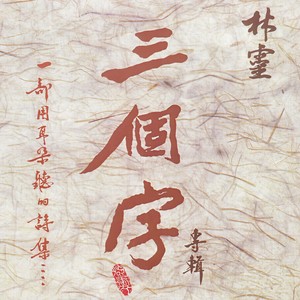 林靈
三個字
專輯
一部用耳朵聽的詩集⋯⋯